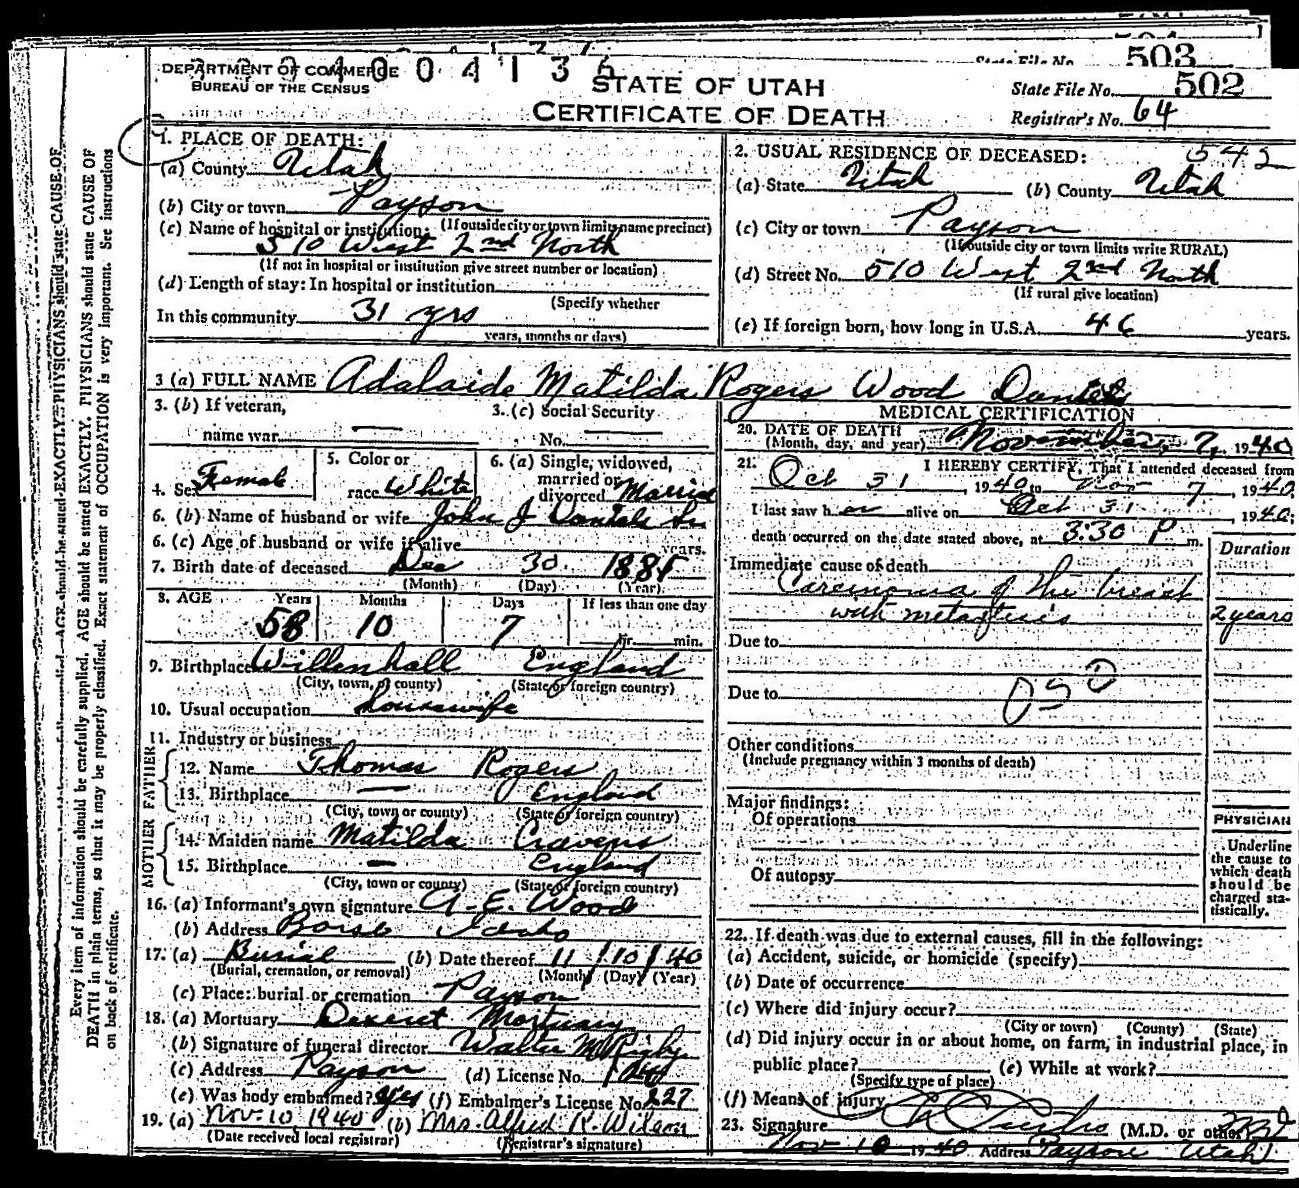 503
State File No. 502
DEPARTMENT OF COMMERCE
BUREAU OF THE CENSUS
STATE OF UTAH
CERTIFICATE OF DEATH
Registrar's No. 64
1. PLACE OF DEATH:
(a) County Utah
(b) City or town Payson
(If outside city or town limits, name precinct)
(c) Name of hospital or institution:
510 West 2nd North
(If not in hospital or institution give street number or location)
(d) Length of stay: In hospital or institution
(Specify whether
In this community 31 yrs
years, months or days)
2. USUAL RESIDENCE OF DECEASED: 542
(a) State Utah (b) County Utah
(c) City or town Payson
(If outside city or town limits write RURAL)
(d) Street No. 510 West 2nd North
(If rural give location)
(e) If foreign born, how long in U.S.A. 46 years.
3 (a) FULL NAME Adalaide Matilda Rogers Wood Daniels
3. (b) If veteran,
name war
3. (c) Social Security
No.
4. Sex Female
5. Color or
race White
6. (a) Single, widowed,
married or
divorced Married
6. (b) Name of husband or wife John J
6. (c) Age of husband or wife if alive years.
7. Birth date of deceased Dec 30
(Month) (Day) (Year)
8. AGE Years Months Days If less than one day
58 10 7 hr. min.
9. Birthplace Willenhall England
(City, town, or county) (State or foreign country)
10. Usual occupation housewife
11. Industry or business
FATHER
12. Name Thomas Rogers
13. Birthplace — England
(City, town or county) (State or foreign country)
MOTHER
14. Maiden name Matilda Cravens
15. Birthplace — England
(City, town or county) (State or foreign country)
16. (a) Informant's own signature A. E. Wood
(b) Address Boise Idaho
17. (a) Burial (b) Date thereof 11/10/40
(Burial, cremation, or removal) (Month) (Day) (Year)
(c) Place: burial or cremation Payson
18. (a) Mortuary Deseret Mortuary
(b) Signature of funeral director Walter M Rigby
(c) Address Payson (d) License No.
(e) Was body embalmed? Yes (f) Embalmer's License No. 227
19. (a) Nov. 10 1940 (b) Mrs. Alfred R. Wilson
(Date received local registrar) (Registrar's signature)
MEDICAL CERTIFICATION
20. DATE OF DEATH
(Month, day, and year) November 7, 1940
21. I HEREBY CERTIFY, That I attended deceased from
Oct 31, 1940 to Nov 7, 1940
I last saw her alive on Oct 31, 1940;
death occurred on the date stated above, at 3:30 P m.
Duration
Immediate cause of death
Carcinoma of the breast
with metastesis 2 years
Due to
Due to
050
Other conditions
(Include pregnancy within 3 months of death)
Major findings:
Of operations
Of autopsy
PHYSICIAN
Underline
the cause to
which death
should be
charged sta-
tistically.
22. If death was due to external causes, fill in the following:
(a) Accident, suicide, or homicide (specify)
(b) Date of occurrence
(c) Where did injury occur?
(City or town) (County) (State)
(d) Did injury occur in or about home, on farm, in industrial place, in
public place? (e) While at work?
(Specify type of place)
(f) Means of injury
23. Signature (M.D. or other)
Nov 10 1940 Address Payson Utah
Every item of information should be carefully supplied. AGE should be stated EXACTLY. PHYSICIANS should state CAUSE OF
DEATH in plain terms, so that it may be properly classified. Exact statement of OCCUPATION is very important. See instructions
on back of certificate.